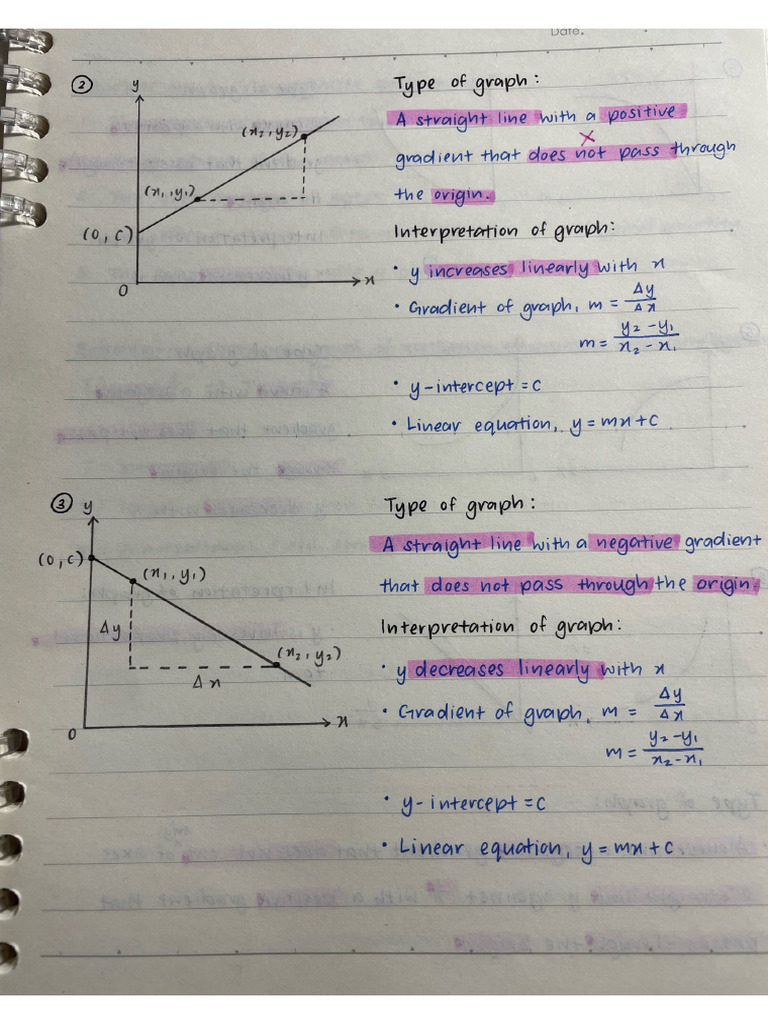 Date.
② y
Type of graph:
A straight line with a positive
x
gradient that does not pass through
the origin.
(x₂, y₂)
(x₁, y₁)
(0, C)
0
x
Interpretation of graph:
• y increases linearly with x
• Gradient of graph, m = Δy/Δx
m = y₂ - y₁/x₂ - x₁
• y-intercept = C
• Linear equation, y = mx + C
③ y
Type of graph:
A straight line with a negative gradient
that does not pass through the origin.
(0, C)
(x₁, y₁)
Δy
(x₂, y₂)
Δx
0
x
Interpretation of graph:
• y decreases linearly with x
• Gradient of graph, m = Δy/Δx
m = y₂ - y₁/x₂ - x₁
• y-intercept = C
• Linear equation, y = mx + C